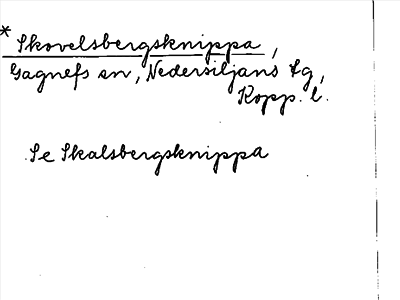 * Skovelsbergsknippa,
Gagnefs sn, Nedersiljans tg,
Kopp. l.
Se Skalsbergsknippa